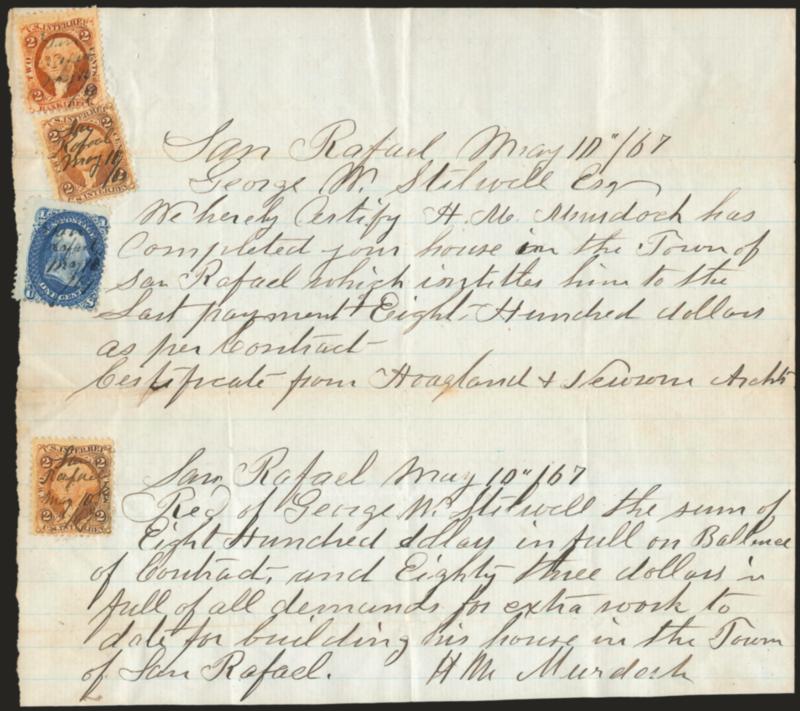 San Rafael May 10"/67
George W. Stilwell Esq
We hereby Certify H. M. Murdoch has
Completed your house in the Town of
San Rafael which intitles him to the
Last payment Eight Hundred dollars
as per Contract
Certificate from Hoagland & Newsom Archts
San Rafael May 10"/67
Recd of George W. Stilwell the sum of
Eight Hundred dollars in full on Ballance
of Contract, and Eighty three dollars in
full of all demands for extra work to
date for building his house in the Town
of San Rafael. H M Murdoch
U.S. INTER. REV.
2
2
TWO
CENTS
2
2
BANK CHECK
San
Rafael
May 10
2
2
U.S. INTER. REV.
U.S. POSTAGE
ONE CENT
U.S. INTER. REV.
2
2
San
Rafael
May 10
2
2
U.S. INTER. REV.